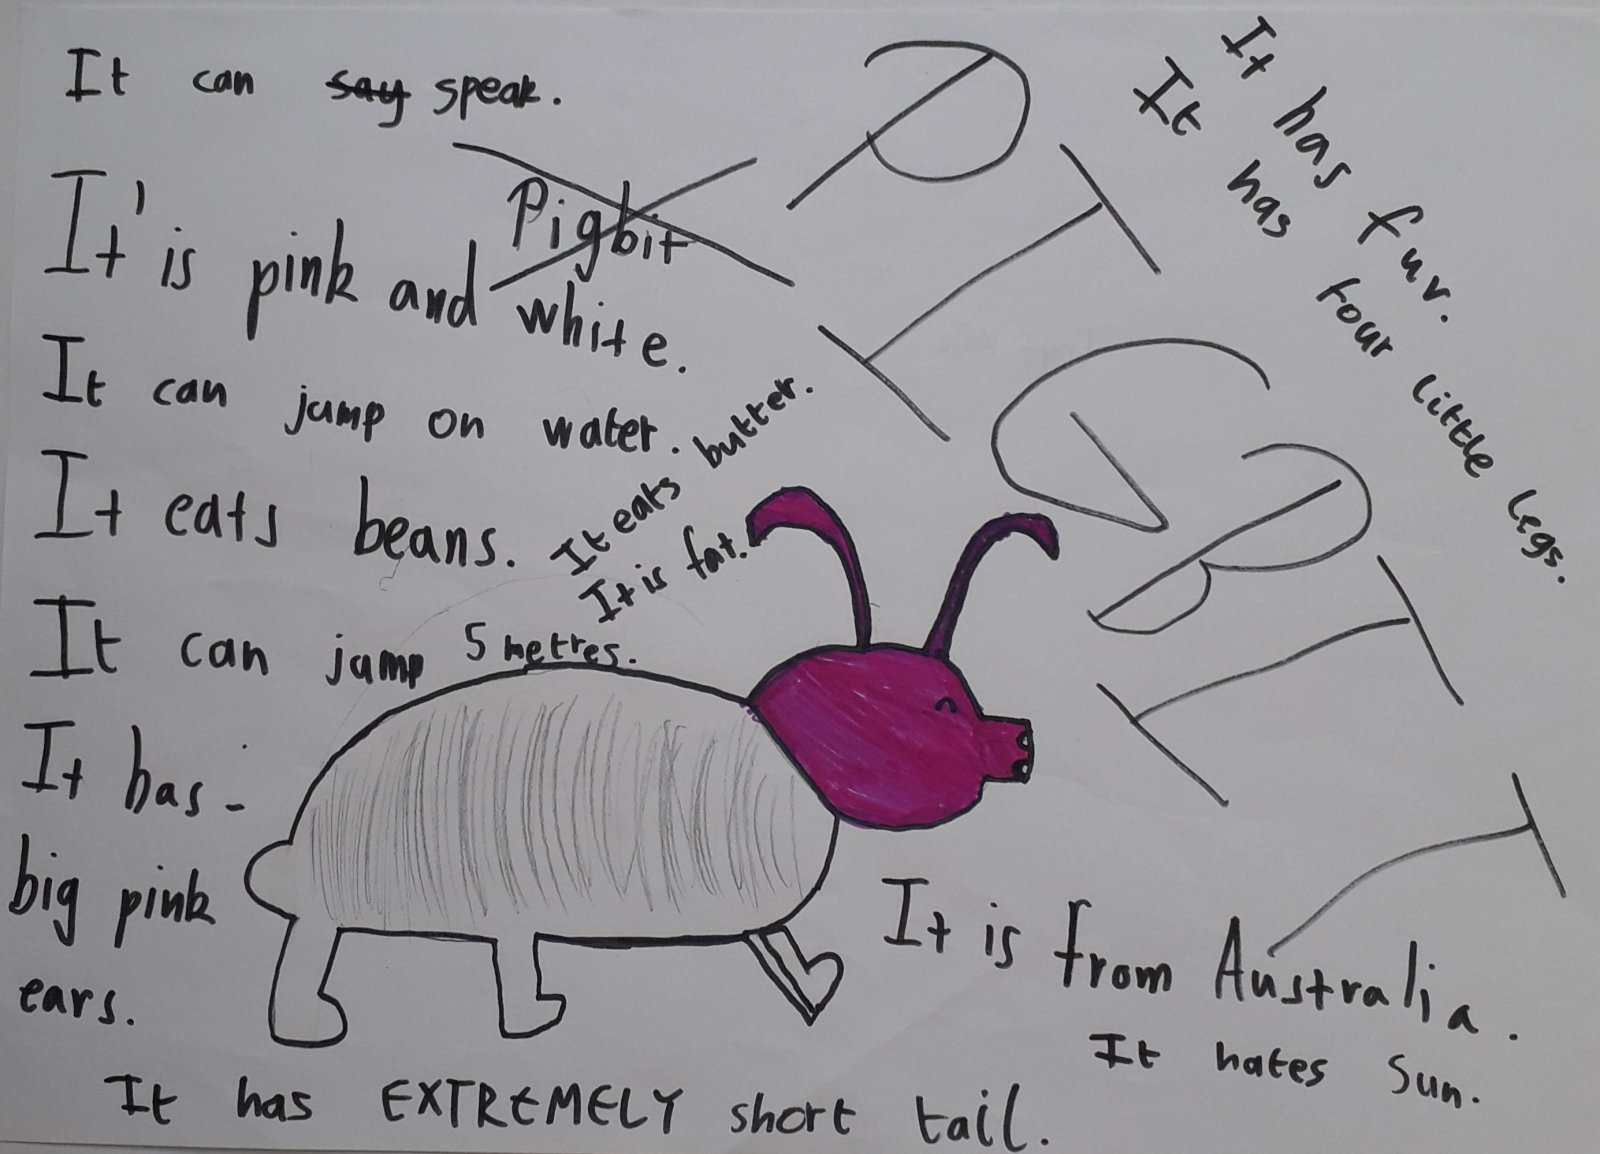 It can say speak.
Pigbit
It' is pink and white.
It can jump on water.
It eats beans.
It eats butter.
It is fat.
It can jump 5 metres.
It has -
big pink
ears.
It has EXTREMELY short tail.
PIGBIT
It has fur.
It has four little legs.
It is from Australia.
It hates sun.